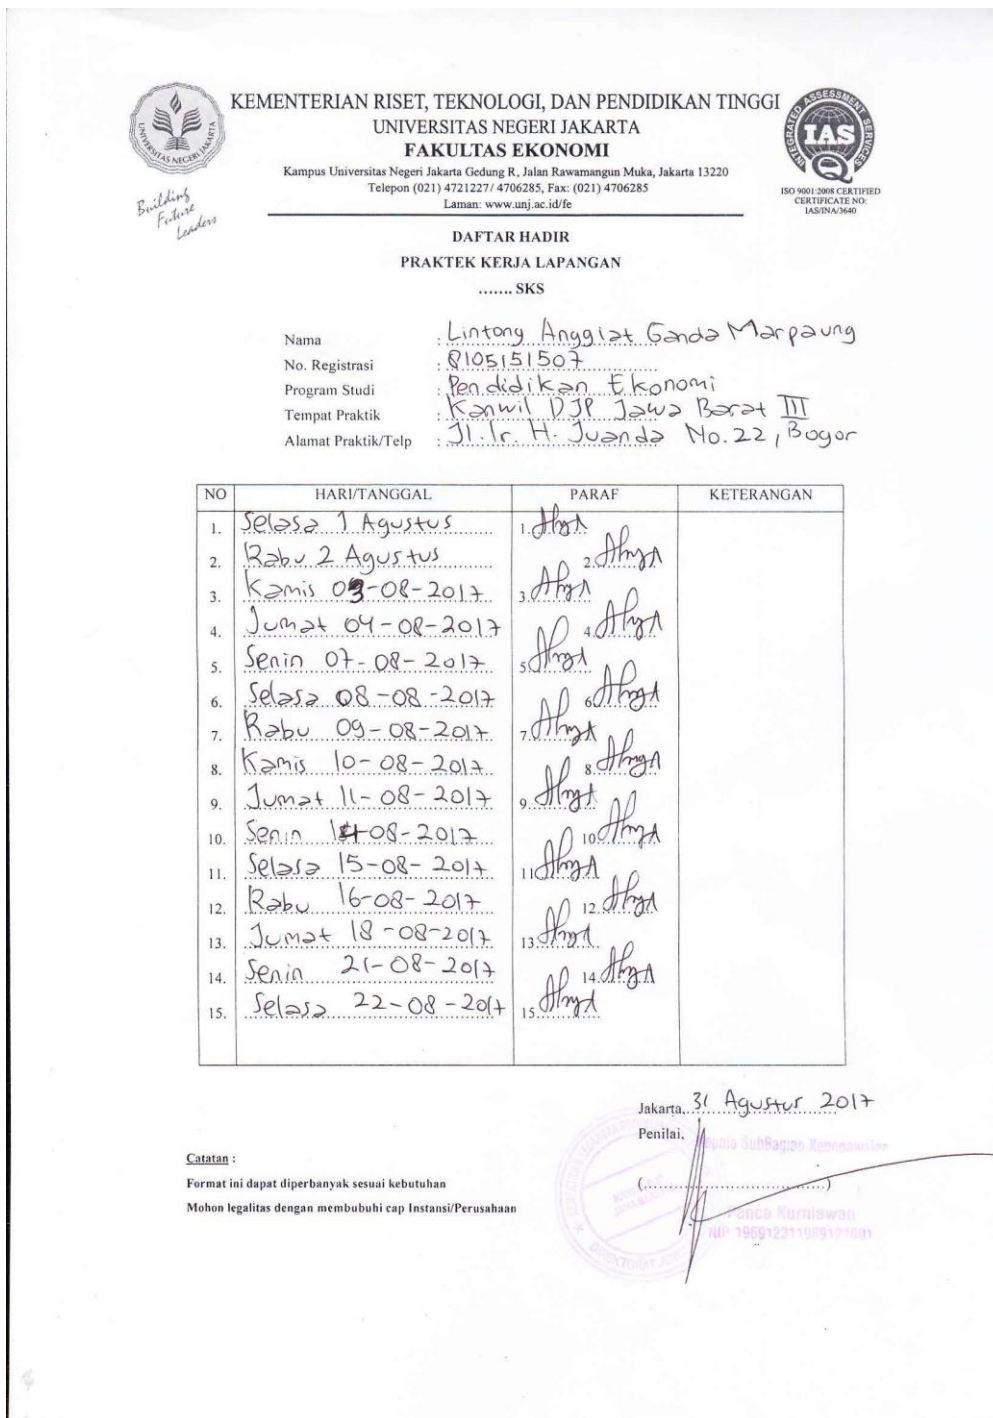 KEMENTERIAN RISET, TEKNOLOGI, DAN PENDIDIKAN TINGGI
UNIVERSITAS NEGERI JAKARTA
FAKULTAS EKONOMI
Kampus Universitas Negeri Jakarta Gedung R, Jalan Rawamangun Muka, Jakarta 13220
Telepon (021) 4721227/ 4706285, Fax: (021) 4706285
Laman: www.unj.ac.id/fe
UNIVERSITAS NEGERI JAKARTA
Building
Future
Leaders
INTEGRATED ASSESSMENT SERVICES
IAS
ISO 9001:2008 CERTIFIED
CERTIFICATE NO:
IAS/INA/3640
DAFTAR HADIR
PRAKTEK KERJA LAPANGAN
....... SKS
Nama : Lintong Anggiat Ganda Marpaung
No. Registrasi : 8105151507
Program Studi : Pendidikan Ekonomi
Tempat Praktik : Kanwil DJP Jawa Barat III
Alamat Praktik/Telp : Jl. Ir. H. Juanda No.22, Bogor
NO HARI/TANGGAL PARAF KETERANGAN
1. Selasa 1 Agustus 1.
2. Rabu 2 Agustus 2.
3. Kamis 03-08-2017 3.
4. Jumat 04-08-2017 4.
5. Senin 07-08-2017 5.
6. Selasa 08-08-2017 6.
7. Rabu 09-08-2017 7.
8. Kamis 10-08-2017 8.
9. Jumat 11-08-2017 9.
10. Senin 14-08-2017 10.
11. Selasa 15-08-2017 11.
12. Rabu 16-08-2017 12.
13. Jumat 18-08-2017 13.
14. Senin 21-08-2017 14.
15. Selasa 22-08-2017 15.
Jakarta, 31 Agustus 2017
Penilai,
Kepala SubBagian Kepegawaian
(..............................)
Panca Kurniawan
NIP 196912311989121001
Catatan :
Format ini dapat diperbanyak sesuai kebutuhan
Mohon legalitas dengan membubuhi cap Instansi/Perusahaan